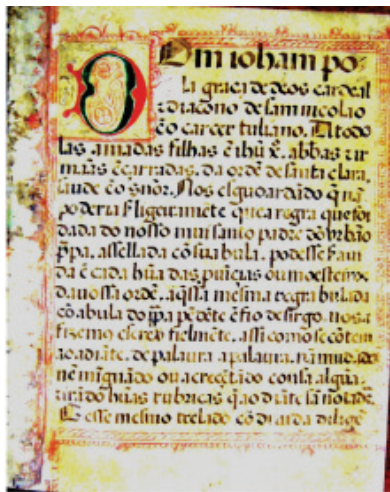 Dom joham po
la graça de deos cardeal
z diacono de sam nicolao
ẽo carcer tuliano. A todo
las amadas filhas ẽ ihũ x̃. abbas z ir
mãas ẽcarradas, da ordẽ de santa clara,
saude ẽo snõr. Nos esguardãdo q̃ nã
poderia ligeiramẽte que a regra que foi
dada do nosso mui santo padre dõ urbão
pp̃a, assellada cõ sua bula, podesse
da ẽ cada hũa das ou moesteiros
da uossa ordẽ, aq̃ssa mesma regra bulada
cõ a bula do pp̃a pẽdẽte ẽ fio de sirgo, nos a
fizemo fielmẽte, assi como se cõtem
ao adiãte, de palaura a palaura, nã mudãdo
nẽ mĩguãdo ou acrecẽtãdo cousa algũa,
tirãdo hũas rubricas q̃ ao diãte sã notadas.
E esse mesmo trelado cõ